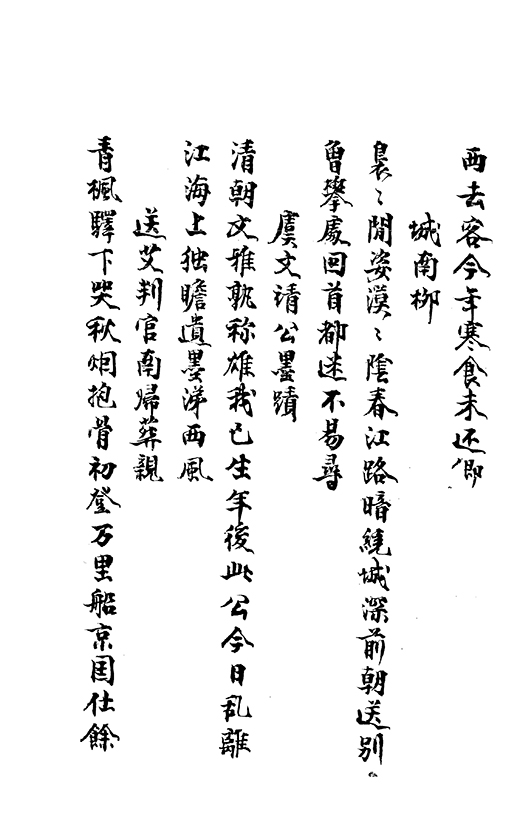 西去客今年寒食未还鄉
城南柳
裊〻閒姿漠〻陰春江路暗繞城深前朝送别
曾攀處回首都迷不易尋
虞文靖公墨蹟
清朝文雅孰称雄我已生年後此公今日乱離
江海上独瞻遺墨涕西風
送艾判官南歸葬親
青楓驛下哭秋烟抱骨初登万里船京国仕餘